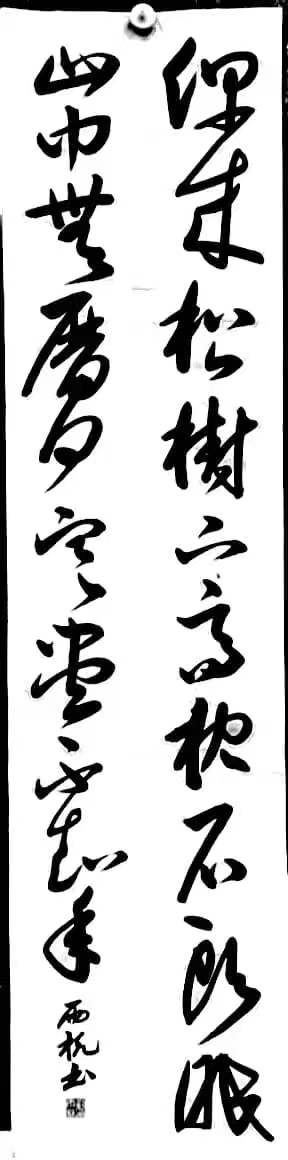 偶来松樹下高枕石頭眠
山中無曆日寒盡不知年
雨杭书